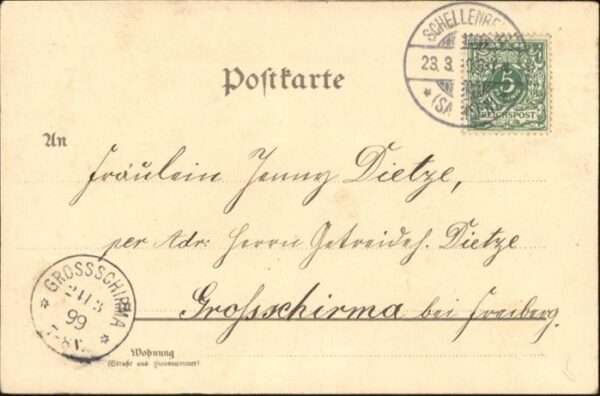 SCHELLENBE
23. 3.
* (SA
5
REICHSPOST
Postkarte
An
Fräulein Jenny Dietze,
per Adr: Herrn Getreideh. Dietze
Grossschirma bei Freiberg.
* GROSSSCHIRMA *
24 3
99
7-8V.
Wohnung
(Straße und Hausnummer)